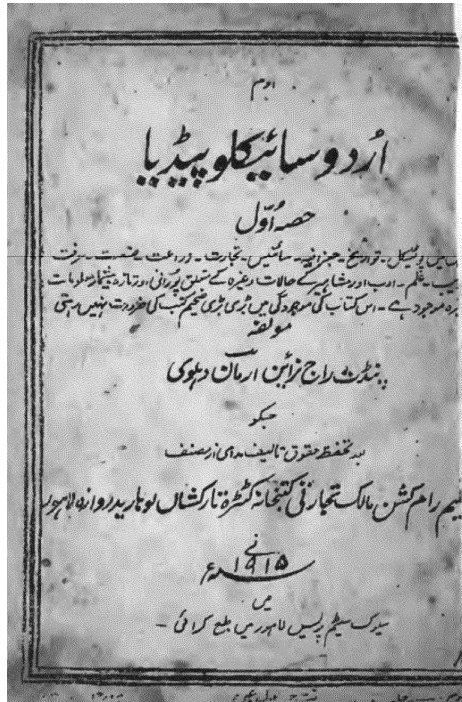 اوم
اُردو سائیکلوپیڈیا
حصہ اوّل
پولیٹیکل - تواریخ - جغرافیہ - سائنس - تجارت - زراعت - صنعت - حرفت
علم - ادب اور مشاہیر کے حالات وغیرہ کے متعلق پُرانی اور تازہ بیشمار معلومات
موجود ہے - اس کتاب کی موجودگی میں بڑی بڑی ضخیم کتب کی ضرورت نہیں رہتی
مولفہ
پنڈت راج نرائن ارمان دہلوی
جسکو
بہ تحفظ حقوق تالیف مصنف
رام کشن مالک تجارتی کتبخانہ کٹڑہ تارکشاں لوہاریدروازہ لاہور
نے
۱۹۱۵ء
میں
سٹیم پریس لاہور میں طبع کرائی -